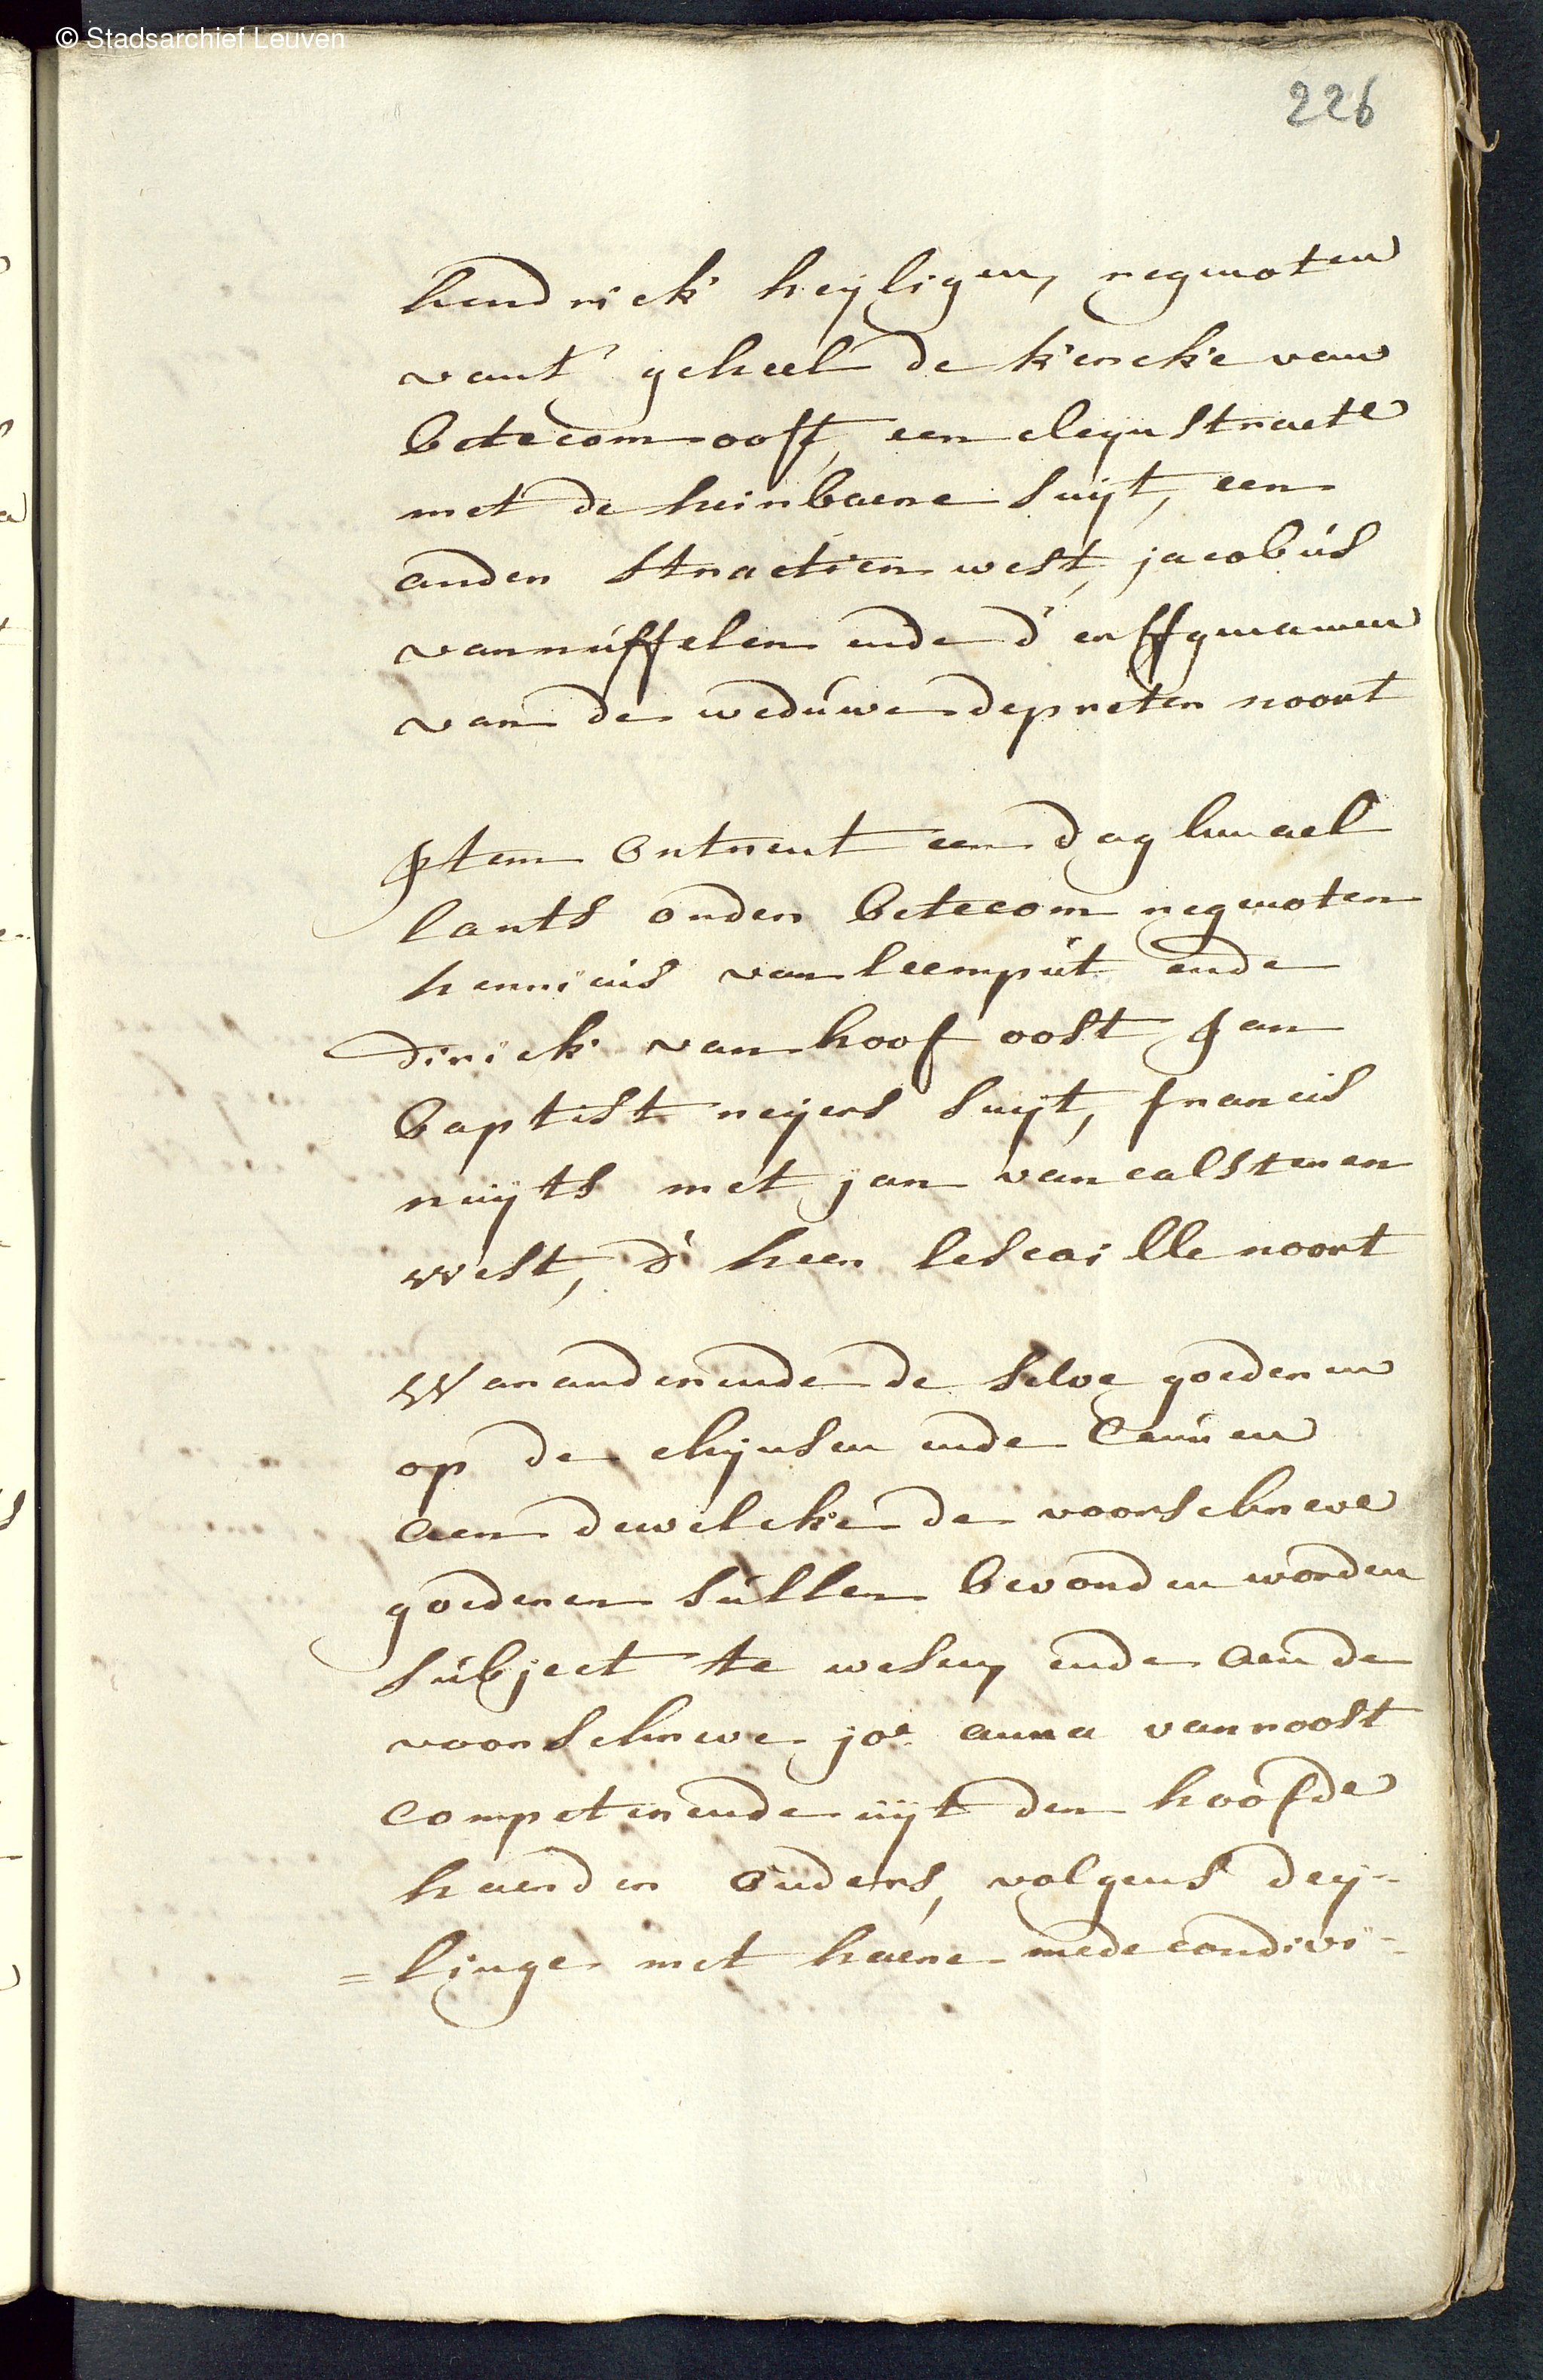 © Stadsarchief Leuven
226
hendrick heyligen, regenoten
vant geheel de kercke van
betecom oost, een cleyn straete
met de heirbaene suyt, een
ander straetien west, jacobus
vannuffelen ende d'erffgenamen
van de weduwe depreter noort
Item ontrent een daghmael
lants onder betecom regenoten
henricus van leemput ende
dirick van hoof oost Jan
baptist reyers suyt, francis
nuyts met jan van calsteren
west, d'heer lescaille noort
Waranderende de selve goederen
op de chynsen ende
aen dewelcke de voorschreve
goederen sullen bevonden worden
subject te wesen, ende aen de
voorschreve jo.e anna vanroost
competerende uyt den hoofde
haerder ouders, volgens dey-
=linge met haere mede condivi-